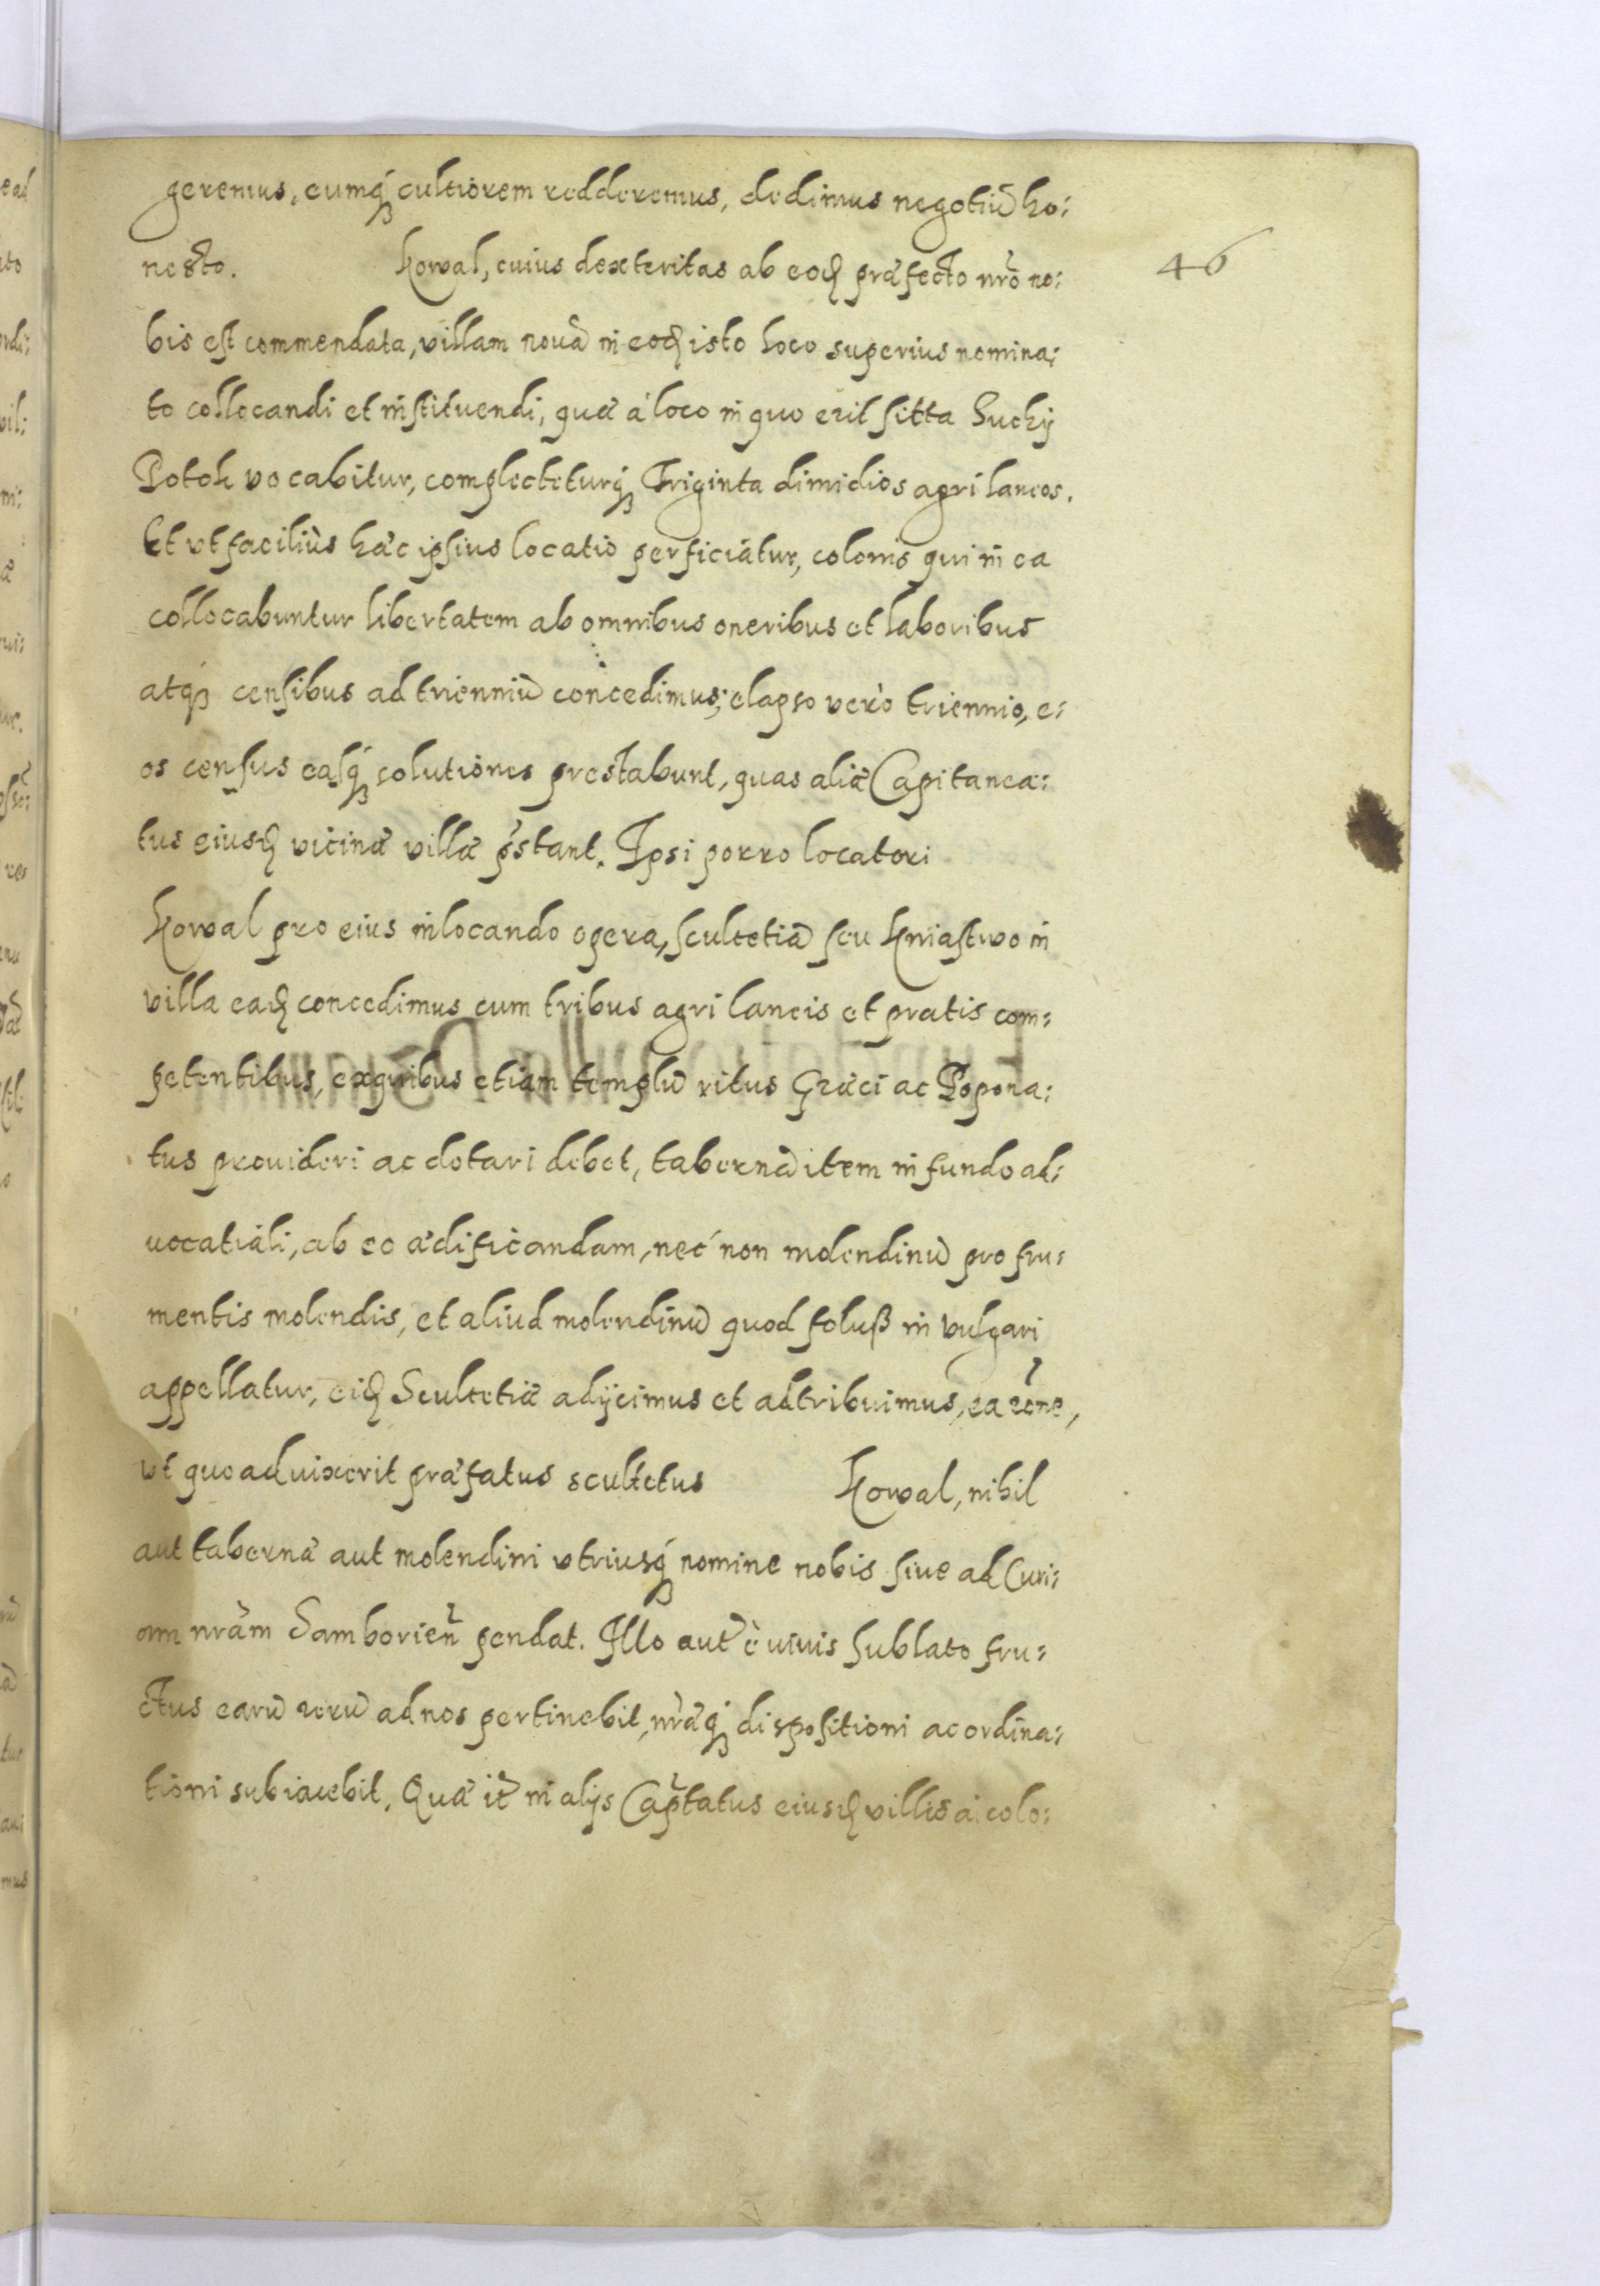 geremus, eumq́ꝫ cultiorem redderemus, dedimus negotiū ho:
46
nesto. Kowal, cuius dexteritas ab eoꝺ̨ præfecto nr̃o no:
bis est commendata, villam nouā in eoꝺ̨ isto loco superius nomina:
to collocandi et instituendi, quæ à loco in quo erit sitta Suchÿ
Potok vocabitur, complecteturq́ꝫ Triginta dimidios agri laneos.
Et vt faciliùs hæc ipsius locatio perficiātur, colonis qui in ea
collocabuntur libertatem ab omnibus oneribus et laboribus
atq́ꝫ censibus ad trienniū concedimus; elapso verò triennio, e:
os census easq́ꝫ solutiones prestabunt, quas aliæ Capitanea:
tus eiusꝺ̨ vicinæ villæ p̃stant. Ipsi porro locatori
Kowal pro eius in locando opera, scultetiā seu Kniastwo in
villa eaꝺ̨ concedimus cum tribus agri laneis et pratis com:
petentibus, ex quibus etiam templū ritus Græci ac Popona:
tus prouideri ac dotari debet, tabernā item in fundo ad:
uocatiali, ab eo ædificandam, nec non molendinū pro fru:
mentis molendis, et aliud molendinū quod foluß in vulgari
appellatur, eiꝺ̨ Scultetiæ adijcimus et adtribuimus, ea rõne,
vt quoad vixerit præfatus scultetus Kowal, nihil
aut tabernæ aut molendini vtriusq́ꝫ nomine nobis siue ad Curi:
am nr̃am Samborien̄ pendat. Illo aut̃ è viuis sublato fru:
ctus earū rerū ad nos pertinebit, nr̃æq́ꝫ dispositioni ac ordina:
tioni subiacebit. Quæ it̃ in alijs Cap̃tatus eiusꝺ̨ villis à colo: